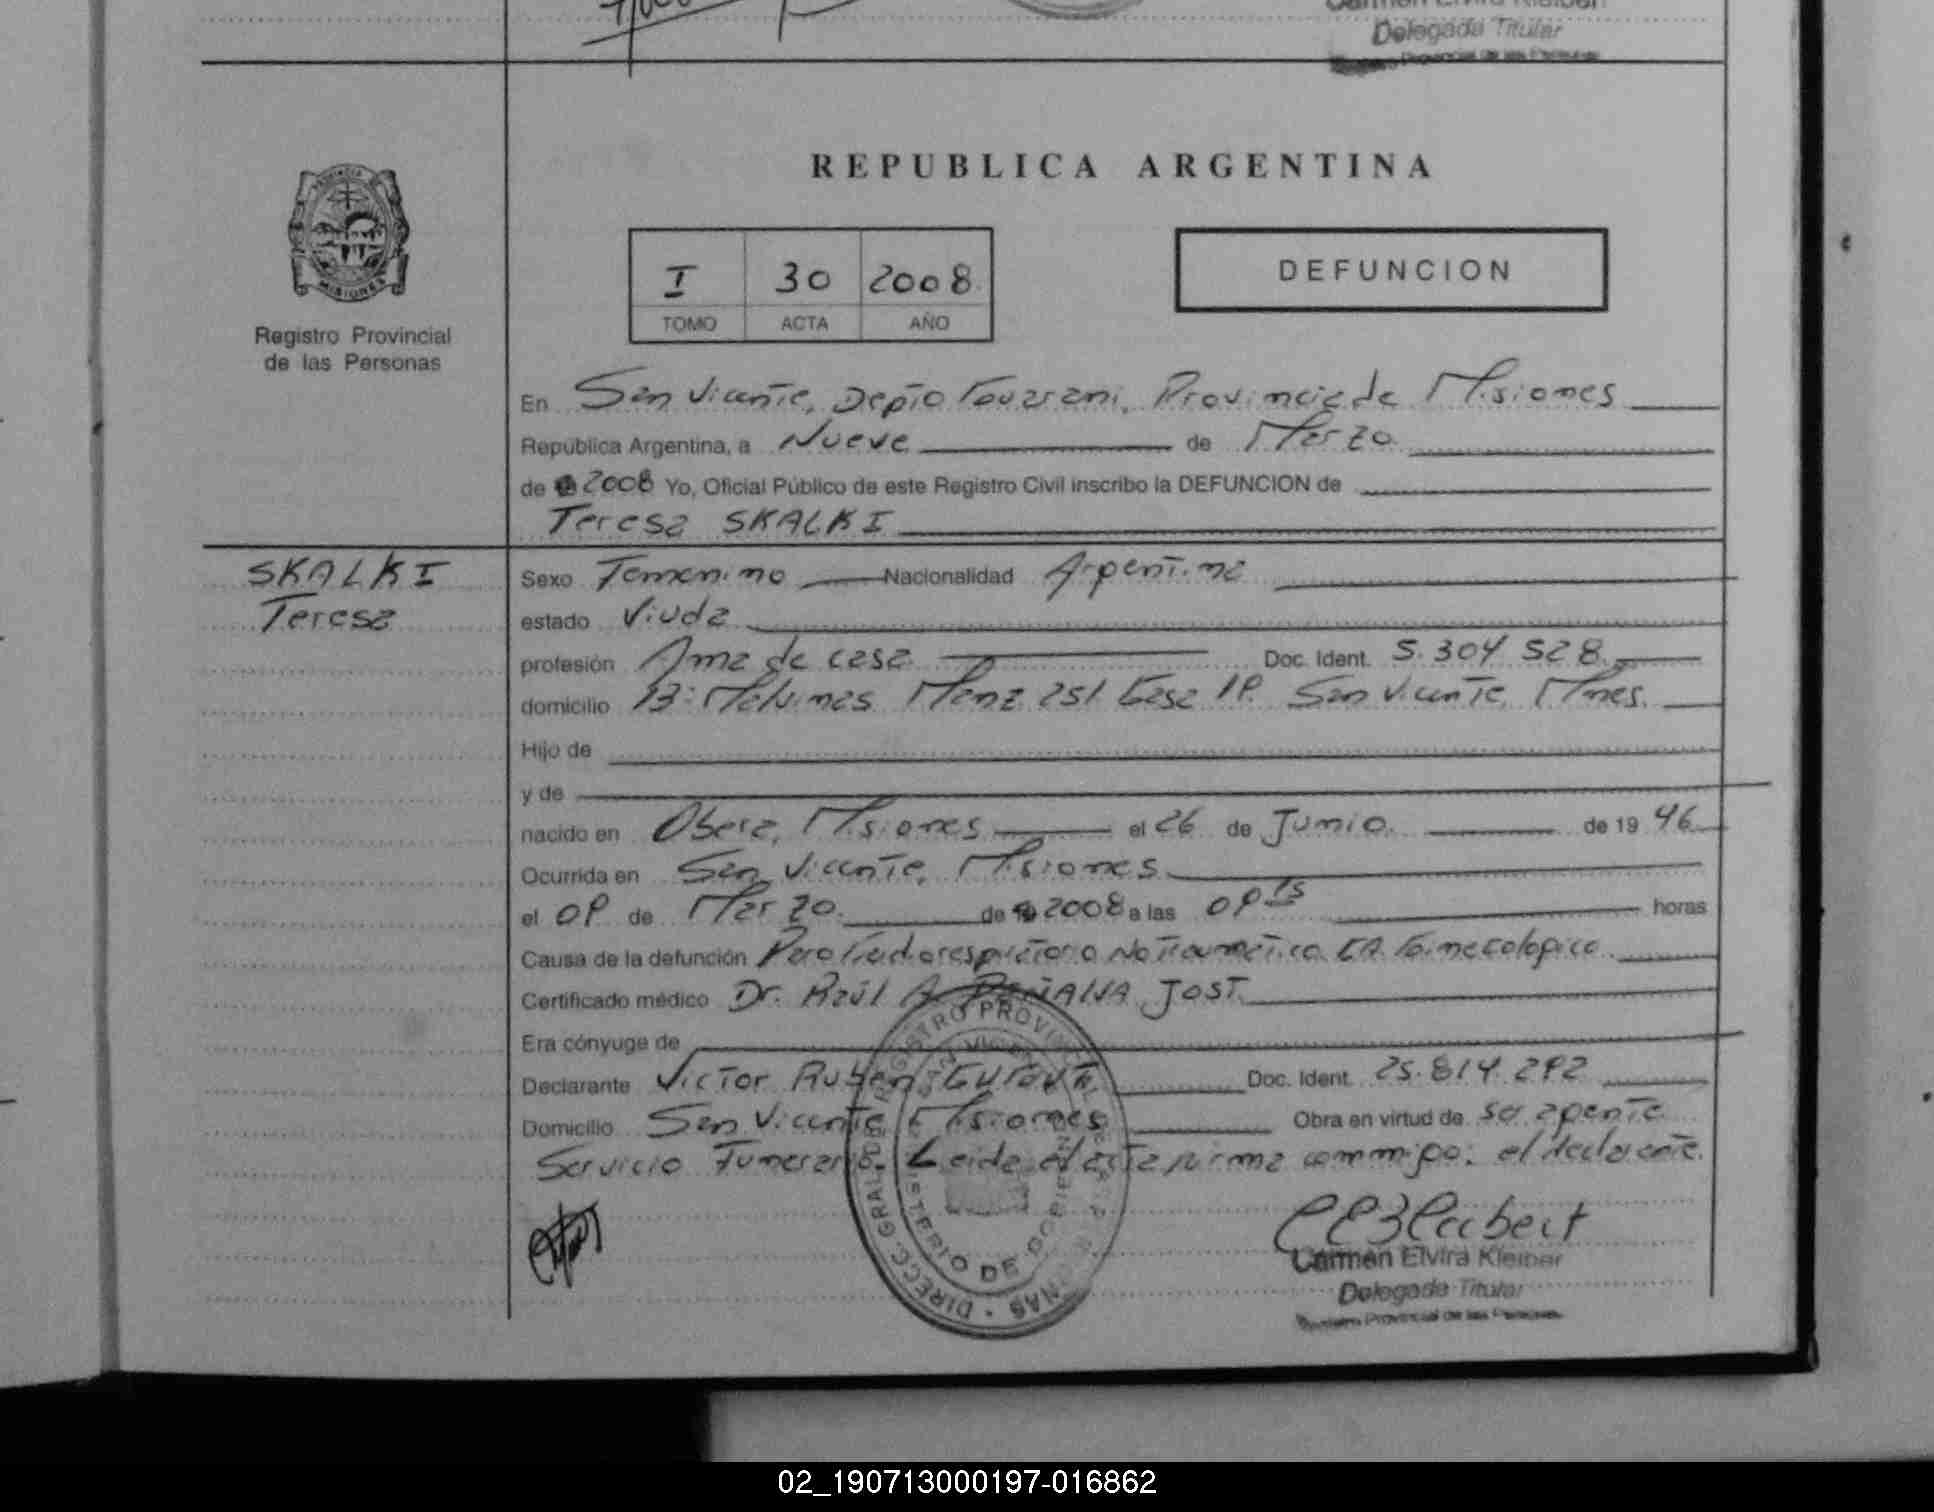 Carmen Elvira Kleiber
Delegada Titular
Registro Provincial de las Personas
REPUBLICA ARGENTINA
PROVINCIA
MISIONES
Registro Provincial
de las Personas
I 30 2008
TOMO ACTA AÑO
DEFUNCION
En San Vicente, Depto Guarani, Provincia de Misiones
República Argentina, a Nueve de Marzo
de 2008 Yo, Oficial Público de este Registro Civil inscribo la DEFUNCION de
Teresa SKALKI
SKALKI
Teresa
Sexo Femenino Nacionalidad Argentina
estado Viuda
profesión Ama de casa Doc. Ident. 5.304 528
domicilio B: Malvinas Manz 251 Casa 19. San Vicente, Mnes.
Hijo de
y de
nacido en Obera, Misiones el 26 de Junio de 1946
Ocurrida en San Vicente, Misiones
el 09 de Marzo de 2008 a las 09 15 horas
Causa de la defunción Paro Cardiorespiratorio No Traumatico CA Ginecologico
Certificado médico Dr. Raúl A. PEÑALVA JOST
Era cónyuge de
Declarante Victor Ruben Doc. Ident. 25.814.292
Domicilio San Vicente Misiones Obra en virtud de ser agente
Servicio Funerario. Leida el acta firma conmigo: el declarante.
REGISTRO PROVINCIAL
SAN VICENTE
MINISTERIO DE GOBIERNO
DIRECC. GRAL. DEL
Carmen Elvira Kleiber
Delegada Titular
Registro Provincial de las Personas
02_190713000197-016862